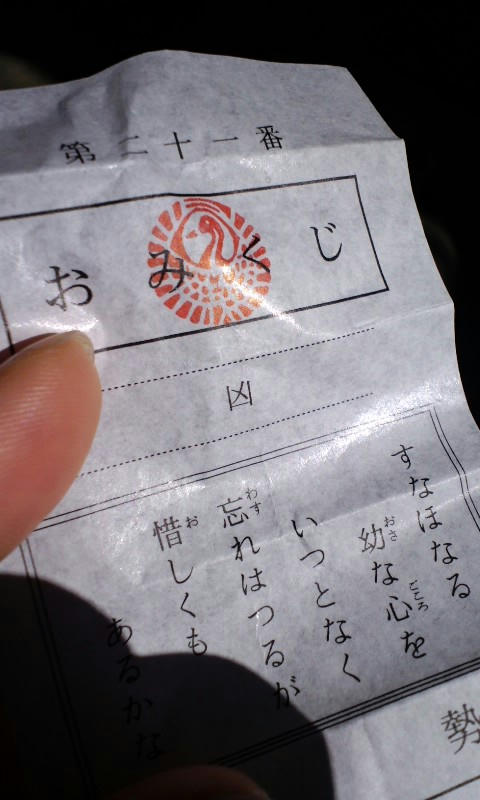 第二十一番
おみくじ
凶
すなほなる
幼な心を
おさ
ごころ
いつとなく
忘れはつるが
わす
惜しくも
お
あるかな
勢